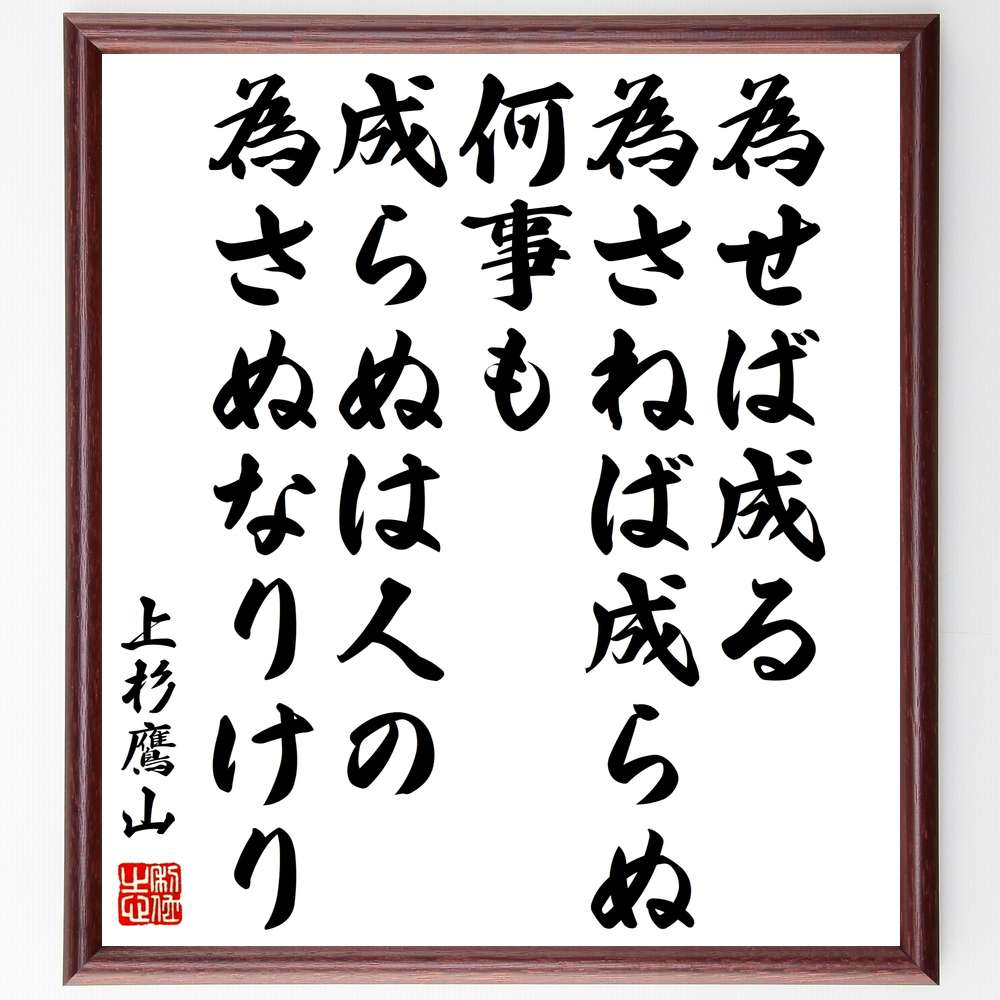 為せば成る
為さねば成らぬ
何事も
成らぬは人の
為さぬなりけり
上杉鷹山